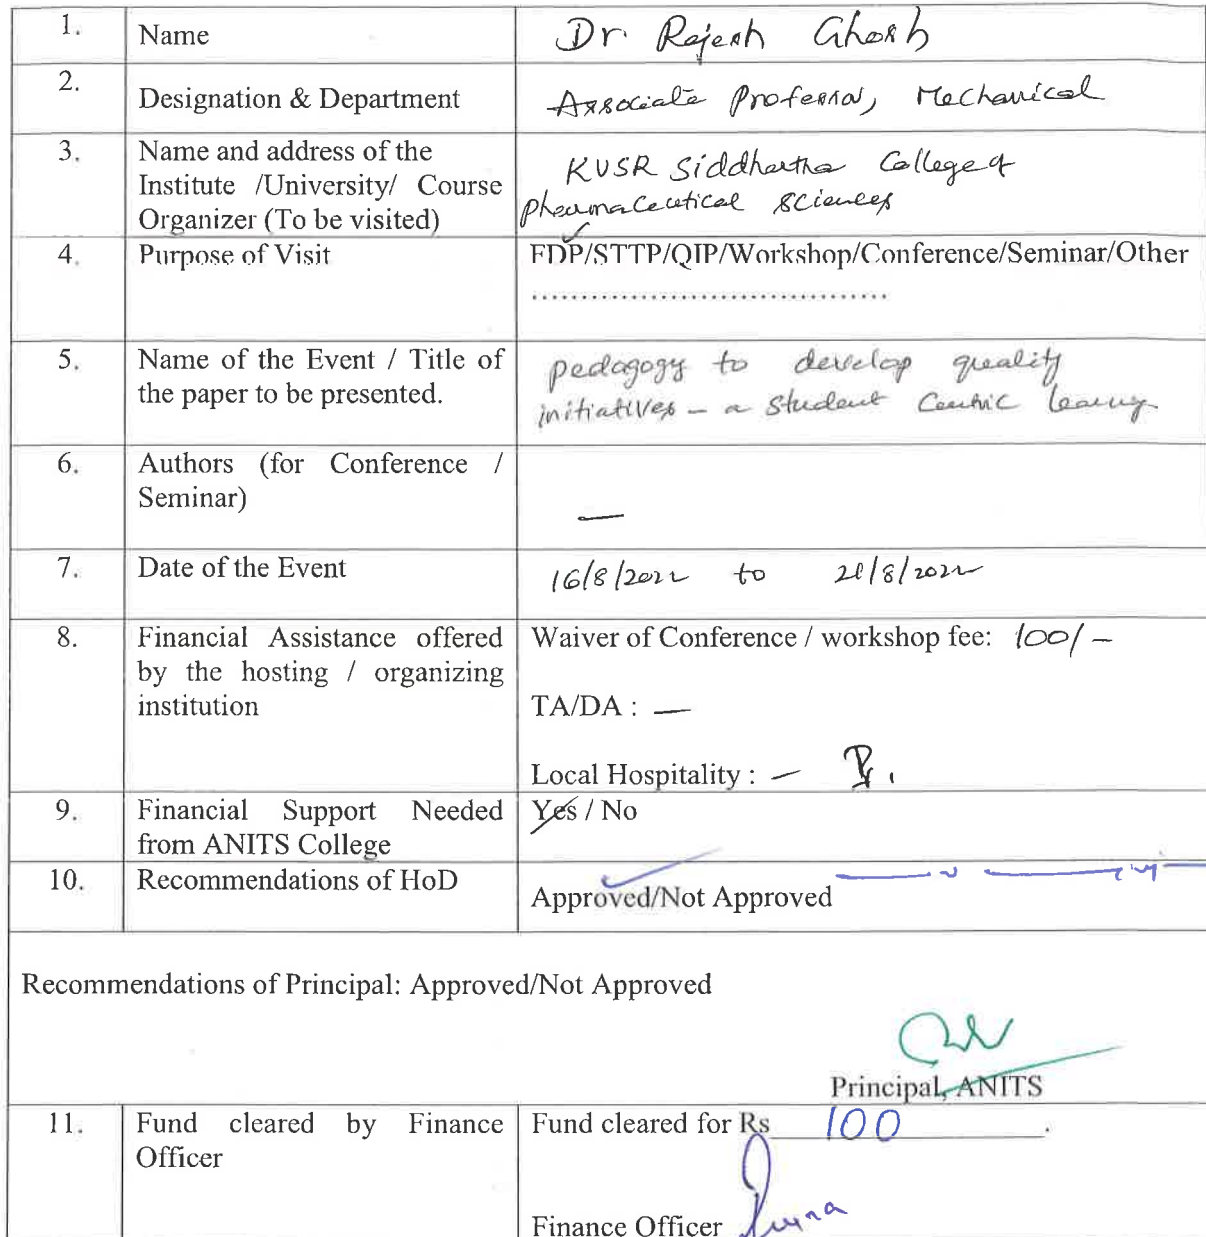 1. Name Dr. Rajesh Ghosh
2. Designation & Department Associate Professor, Mechanical
3. Name and address of the
Institute /University/ Course
Organizer (To be visited)
KVSR Siddhartha College of
pharmaceutical sciences
4. Purpose of Visit FDP/STTP/QIP/Workshop/Conference/Seminar/Other
....................................
5. Name of the Event / Title of
the paper to be presented.
pedagogy to develop quality
initiatives – a student centric learning
6. Authors (for Conference /
Seminar)
—
7. Date of the Event 16/8/2022 to 21/8/2022
8. Financial Assistance offered
by the hosting / organizing
institution
Waiver of Conference / workshop fee: 100/–
TA/DA : —
Local Hospitality : –
9. Financial Support Needed
from ANITS College
Yes / No
10. Recommendations of HoD
Approved/Not Approved
Recommendations of Principal: Approved/Not Approved
Principal, ANITS
11. Fund cleared by Finance
Officer
Fund cleared for Rs 100.
Finance Officer